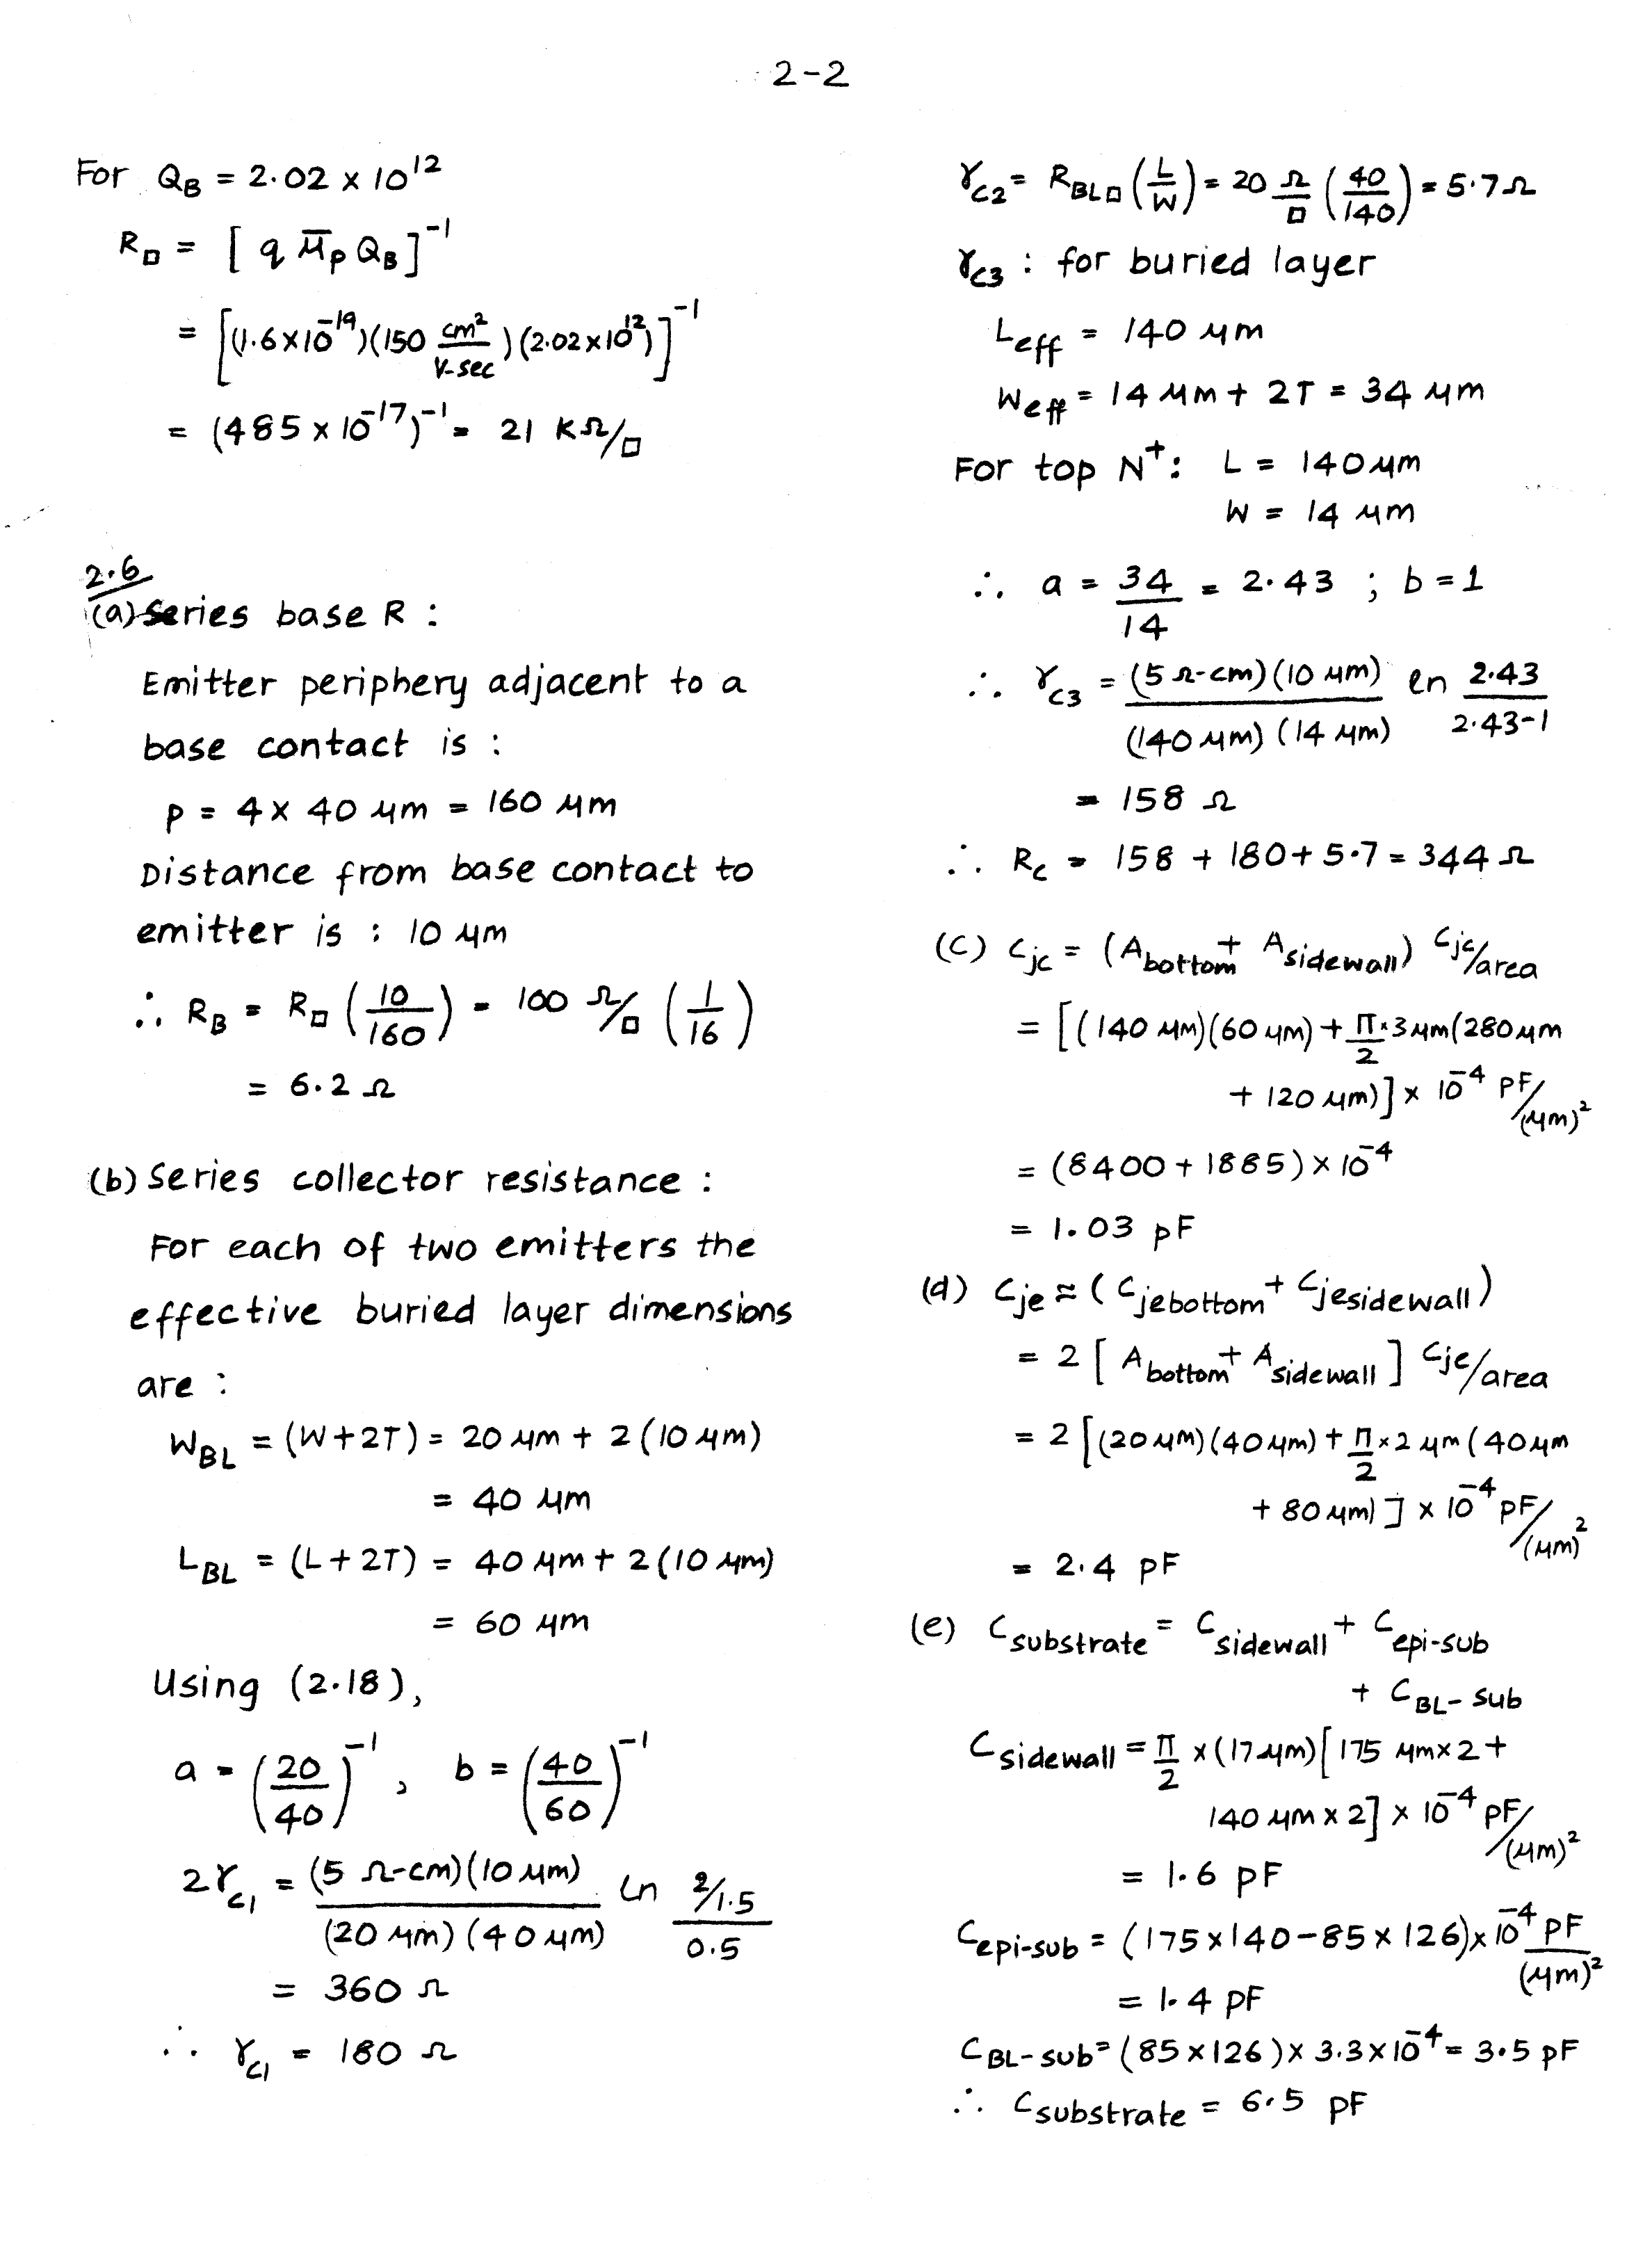 2-2
For Q_B = 2.02 × 10^12
R_□ = [q μ̄_p Q_B]^-1
= [(1.6×10^-19)(150 cm²/V-sec)(2.02×10^12)]^-1
= (485 × 10^-17)^-1 = 21 KΩ/□
2.6
(a) Series base R :
Emitter periphery adjacent to a
base contact is :
p = 4 × 40 μm = 160 μm
Distance from base contact to
emitter is : 10 μm
∴ R_B = R_□ (10/160) = 100 Ω/□ (1/16)
= 6.2 Ω
(b) Series collector resistance :
For each of two emitters the
effective buried layer dimensions
are :
W_BL = (W+2T) = 20 μm + 2(10 μm)
= 40 μm
L_BL = (L+2T) = 40 μm + 2(10 μm)
= 60 μm
Using (2.18),
a = (20/40)^-1 , b = (40/60)^-1
2r_c1 = (5 Ω-cm)(10 μm)/(20 μm)(40 μm) ln (2/1.5)/0.5
= 360 Ω
∴ r_c1 = 180 Ω
r_c2 = R_BL□ (L/W) = 20 Ω/□ (40/140) = 5.7Ω
r_c3 : for buried layer
L_eff = 140 μm
W_eff = 14 μm + 2T = 34 μm
For top N^+ : L = 140 μm
W = 14 μm
∴ a = 34/14 = 2.43 ; b = 1
∴ r_c3 = (5 Ω-cm)(10 μm)/(140 μm)(14 μm) ln 2.43/2.43-1
= 158 Ω
∴ R_c = 158 + 180 + 5.7 = 344 Ω
(c) C_jc = (A_bottom + A_sidewall) C_jc/area
= [(140 μm)(60 μm) + π/2 × 3 μm (280 μm
+ 120 μm)] × 10^-4 PF/(μm)²
= (8400 + 1885) × 10^-4
= 1.03 pF
(d) C_je ≈ (C_jebottom + C_jesidewall)
= 2 [A_bottom + A_sidewall] C_je/area
= 2 [(20 μm)(40 μm) + π/2 × 2 μm (40 μm
+ 80 μm)] × 10^-4 PF/(μm)²
= 2.4 pF
(e) C_substrate = C_sidewall + C_epi-sub
+ C_BL-sub
C_sidewall = π/2 × (17 μm) [175 μm × 2 +
140 μm × 2] × 10^-4 PF/(μm)²
= 1.6 pF
C_epi-sub = (175 × 140 - 85 × 126) × 10^-4 PF/(μm)²
= 1.4 pF
C_BL-sub = (85 × 126) × 3.3 × 10^-4 = 3.5 pF
∴ C_substrate = 6.5 pF